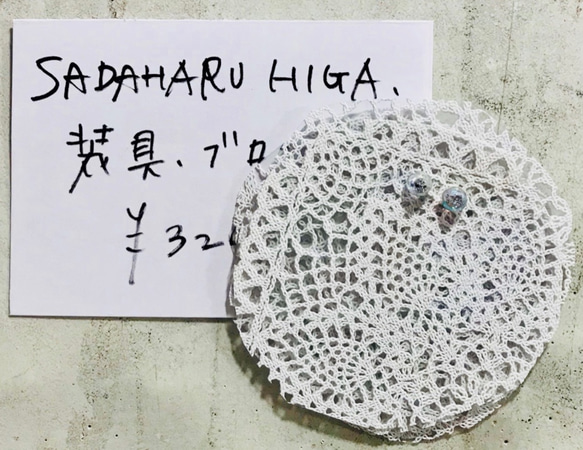 SADAHARU HIGA.
装具、ブロ
¥320